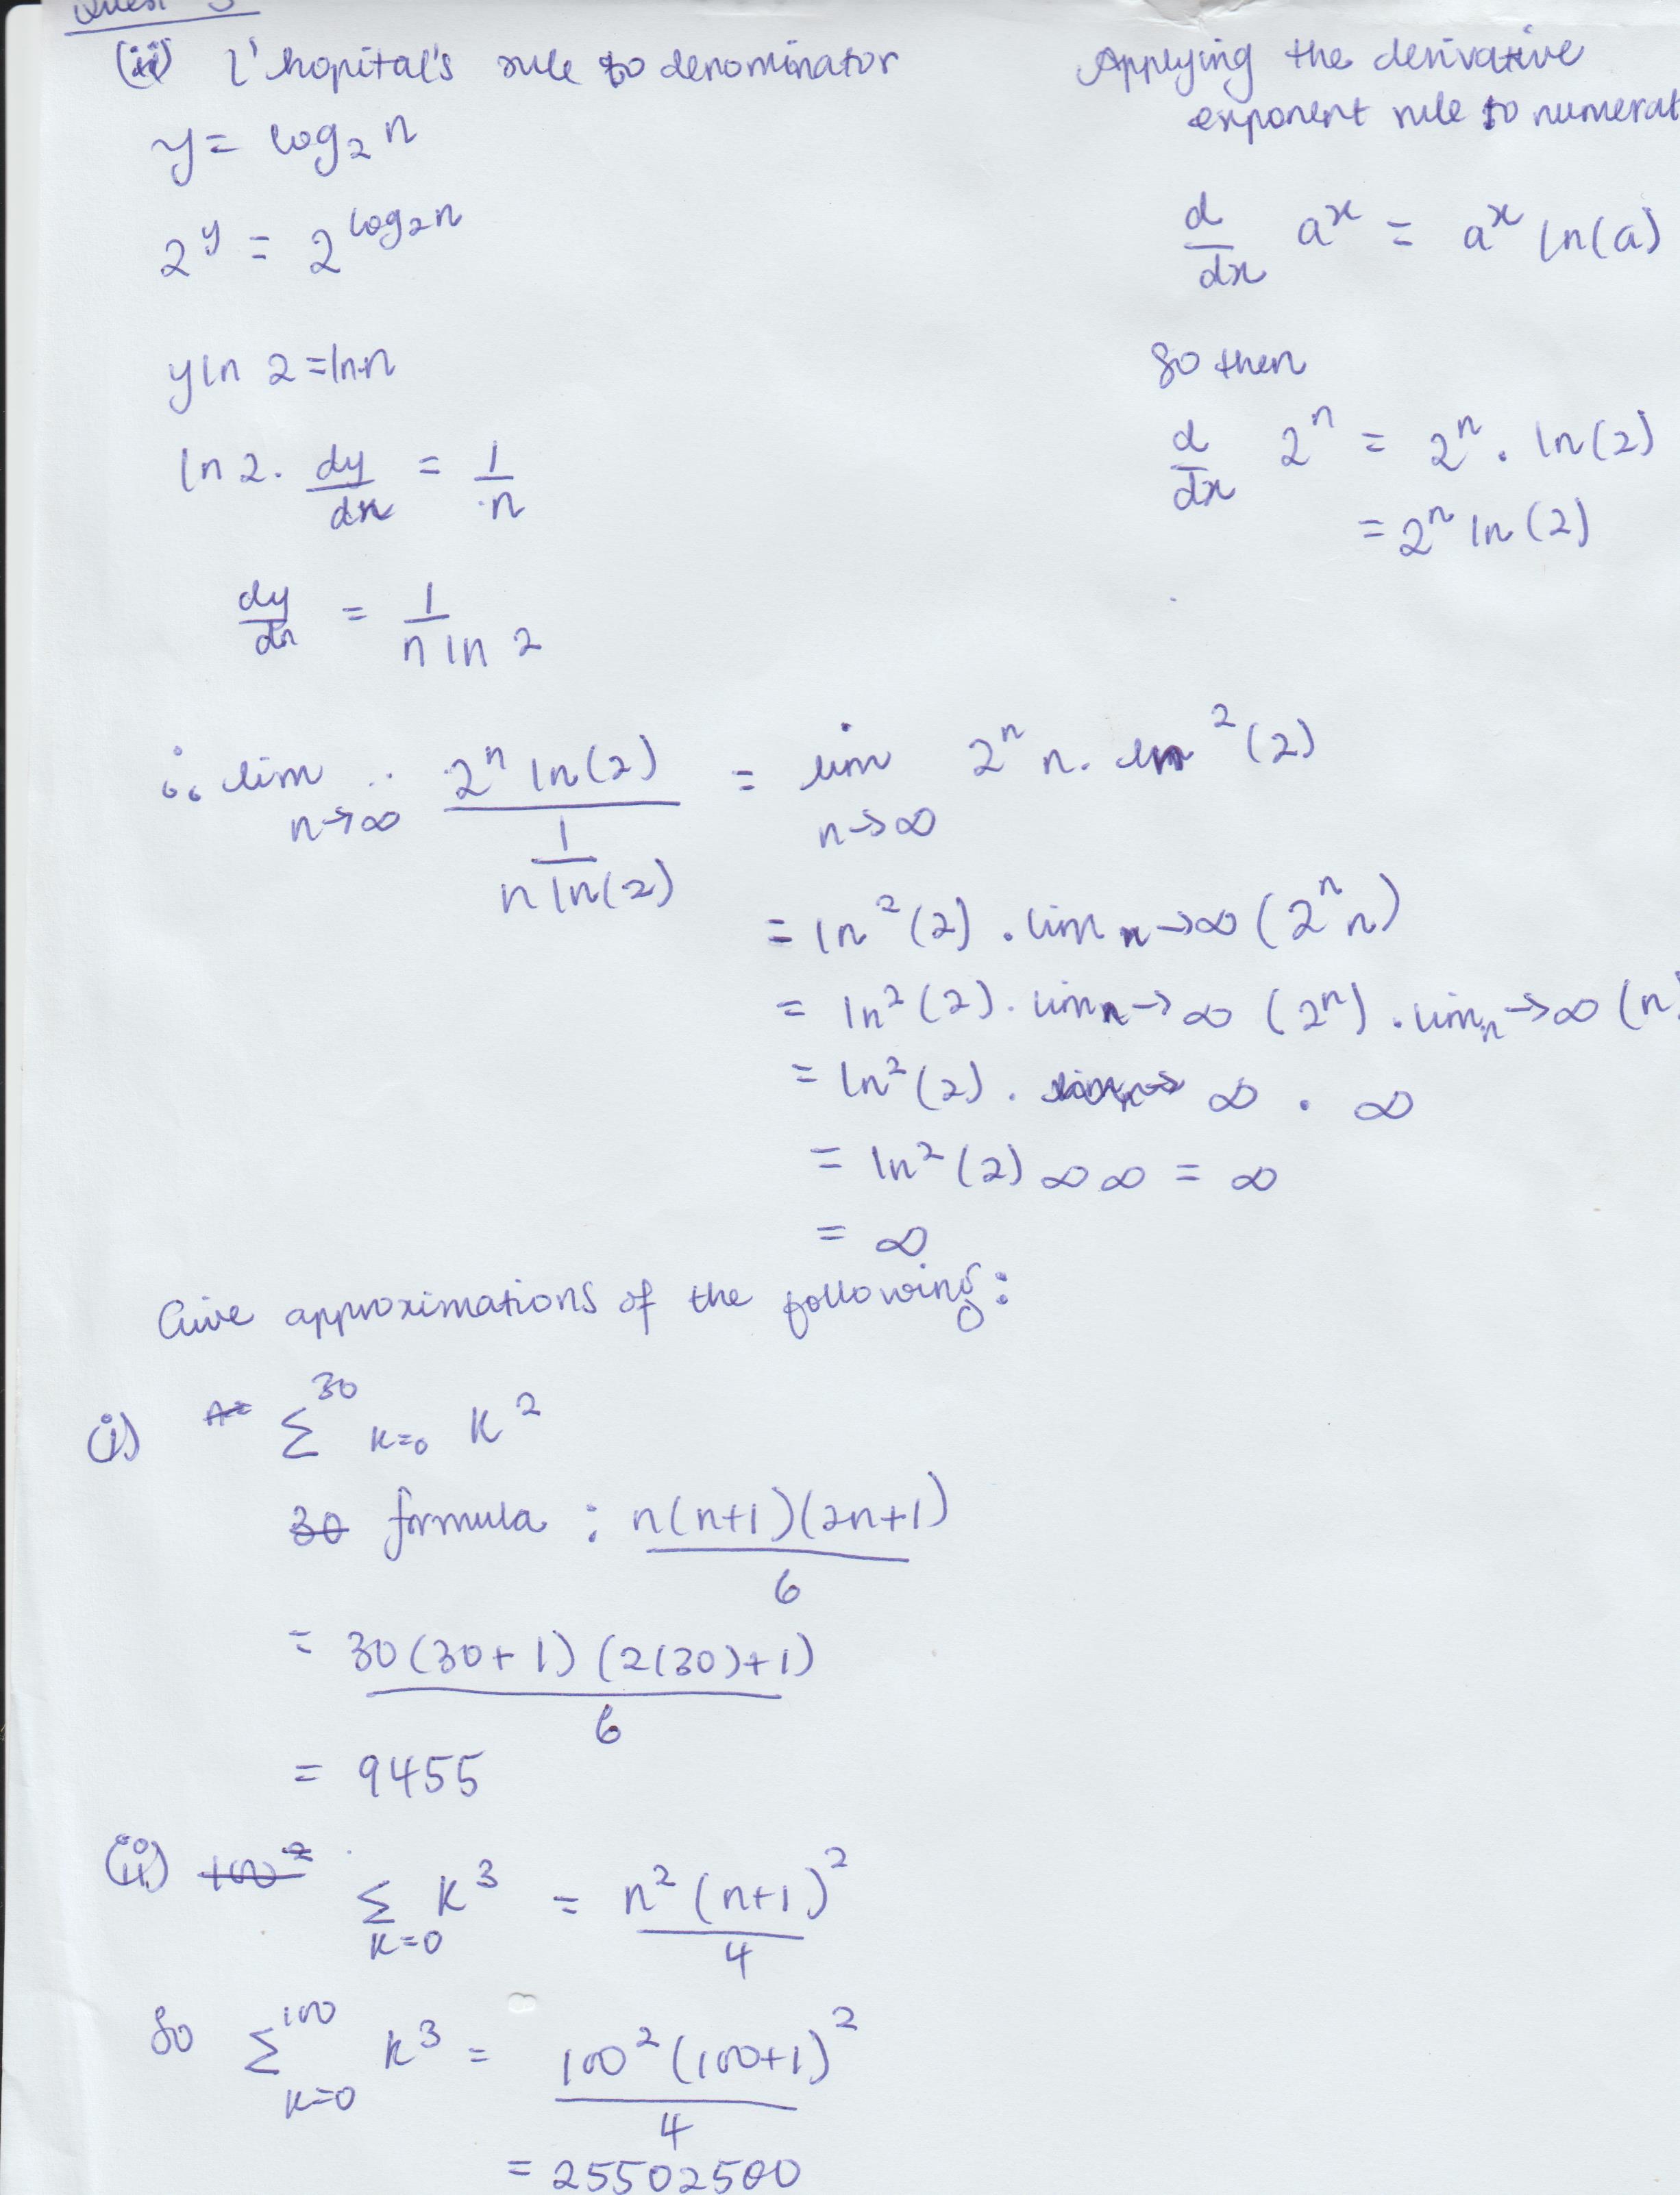 Quest 3
(ii) L'hopital's rule to denominator
y = log₂ n
2^y = 2^log₂n
y ln 2 = ln n
ln 2 . dy/dn = 1/n
dy/dn = 1/(n ln 2)
Applying the derivative
exponent rule to numerat
d/dx a^x = a^x ln(a)
So then
d/dx 2^n = 2^n . ln(2)
= 2^n ln(2)
∴ lim n→∞ (2^n ln(2))/(1/(n ln(2))) = lim n→∞ 2^n n . ln²(2)
= ln²(2) . lim n→∞ (2^n n)
= ln²(2) . lim n→∞ (2^n) . lim n→∞ (n)
= ln²(2) . ∞ . ∞
= ln²(2) ∞ ∞ = ∞
= ∞
Give approximations of the following:
(i) Σ^30 k=0 k²
30 formula : n(n+1)(2n+1)/6
= 30(30+1)(2(30)+1)/6
= 9455
(ii) 100² Σ k=0 k³ = n²(n+1)²/4
So Σ^100 k=0 k³ = 100²(100+1)²/4
= 25502500